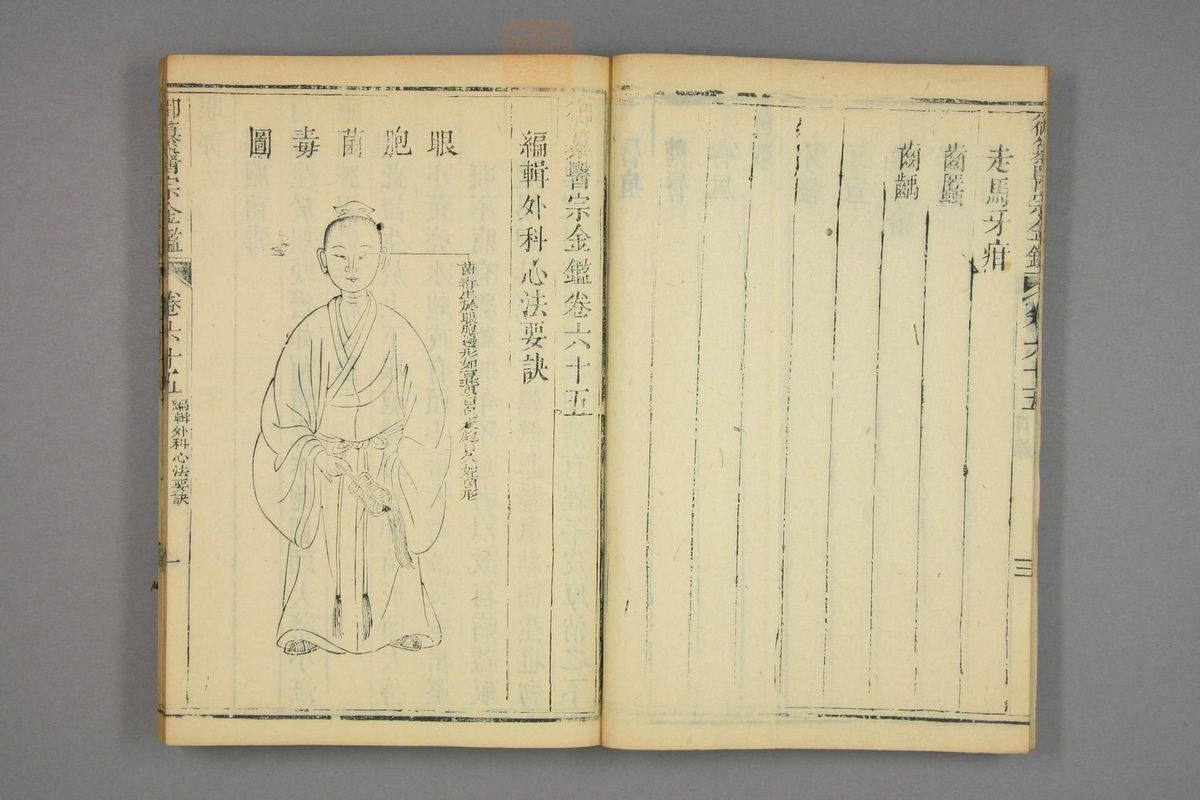 走馬牙疳
齒䘌
齒齲
御纂醫宗金鑑
卷六十五
目錄
三
御纂醫宗金鑑卷六十五
編輯外科心法要訣
眼胞菌毒圖
菌毒生於眼胞邊形如
白色
日久如菌形
御纂醫宗金鑑
卷六十五
編輯外科心法要訣
一